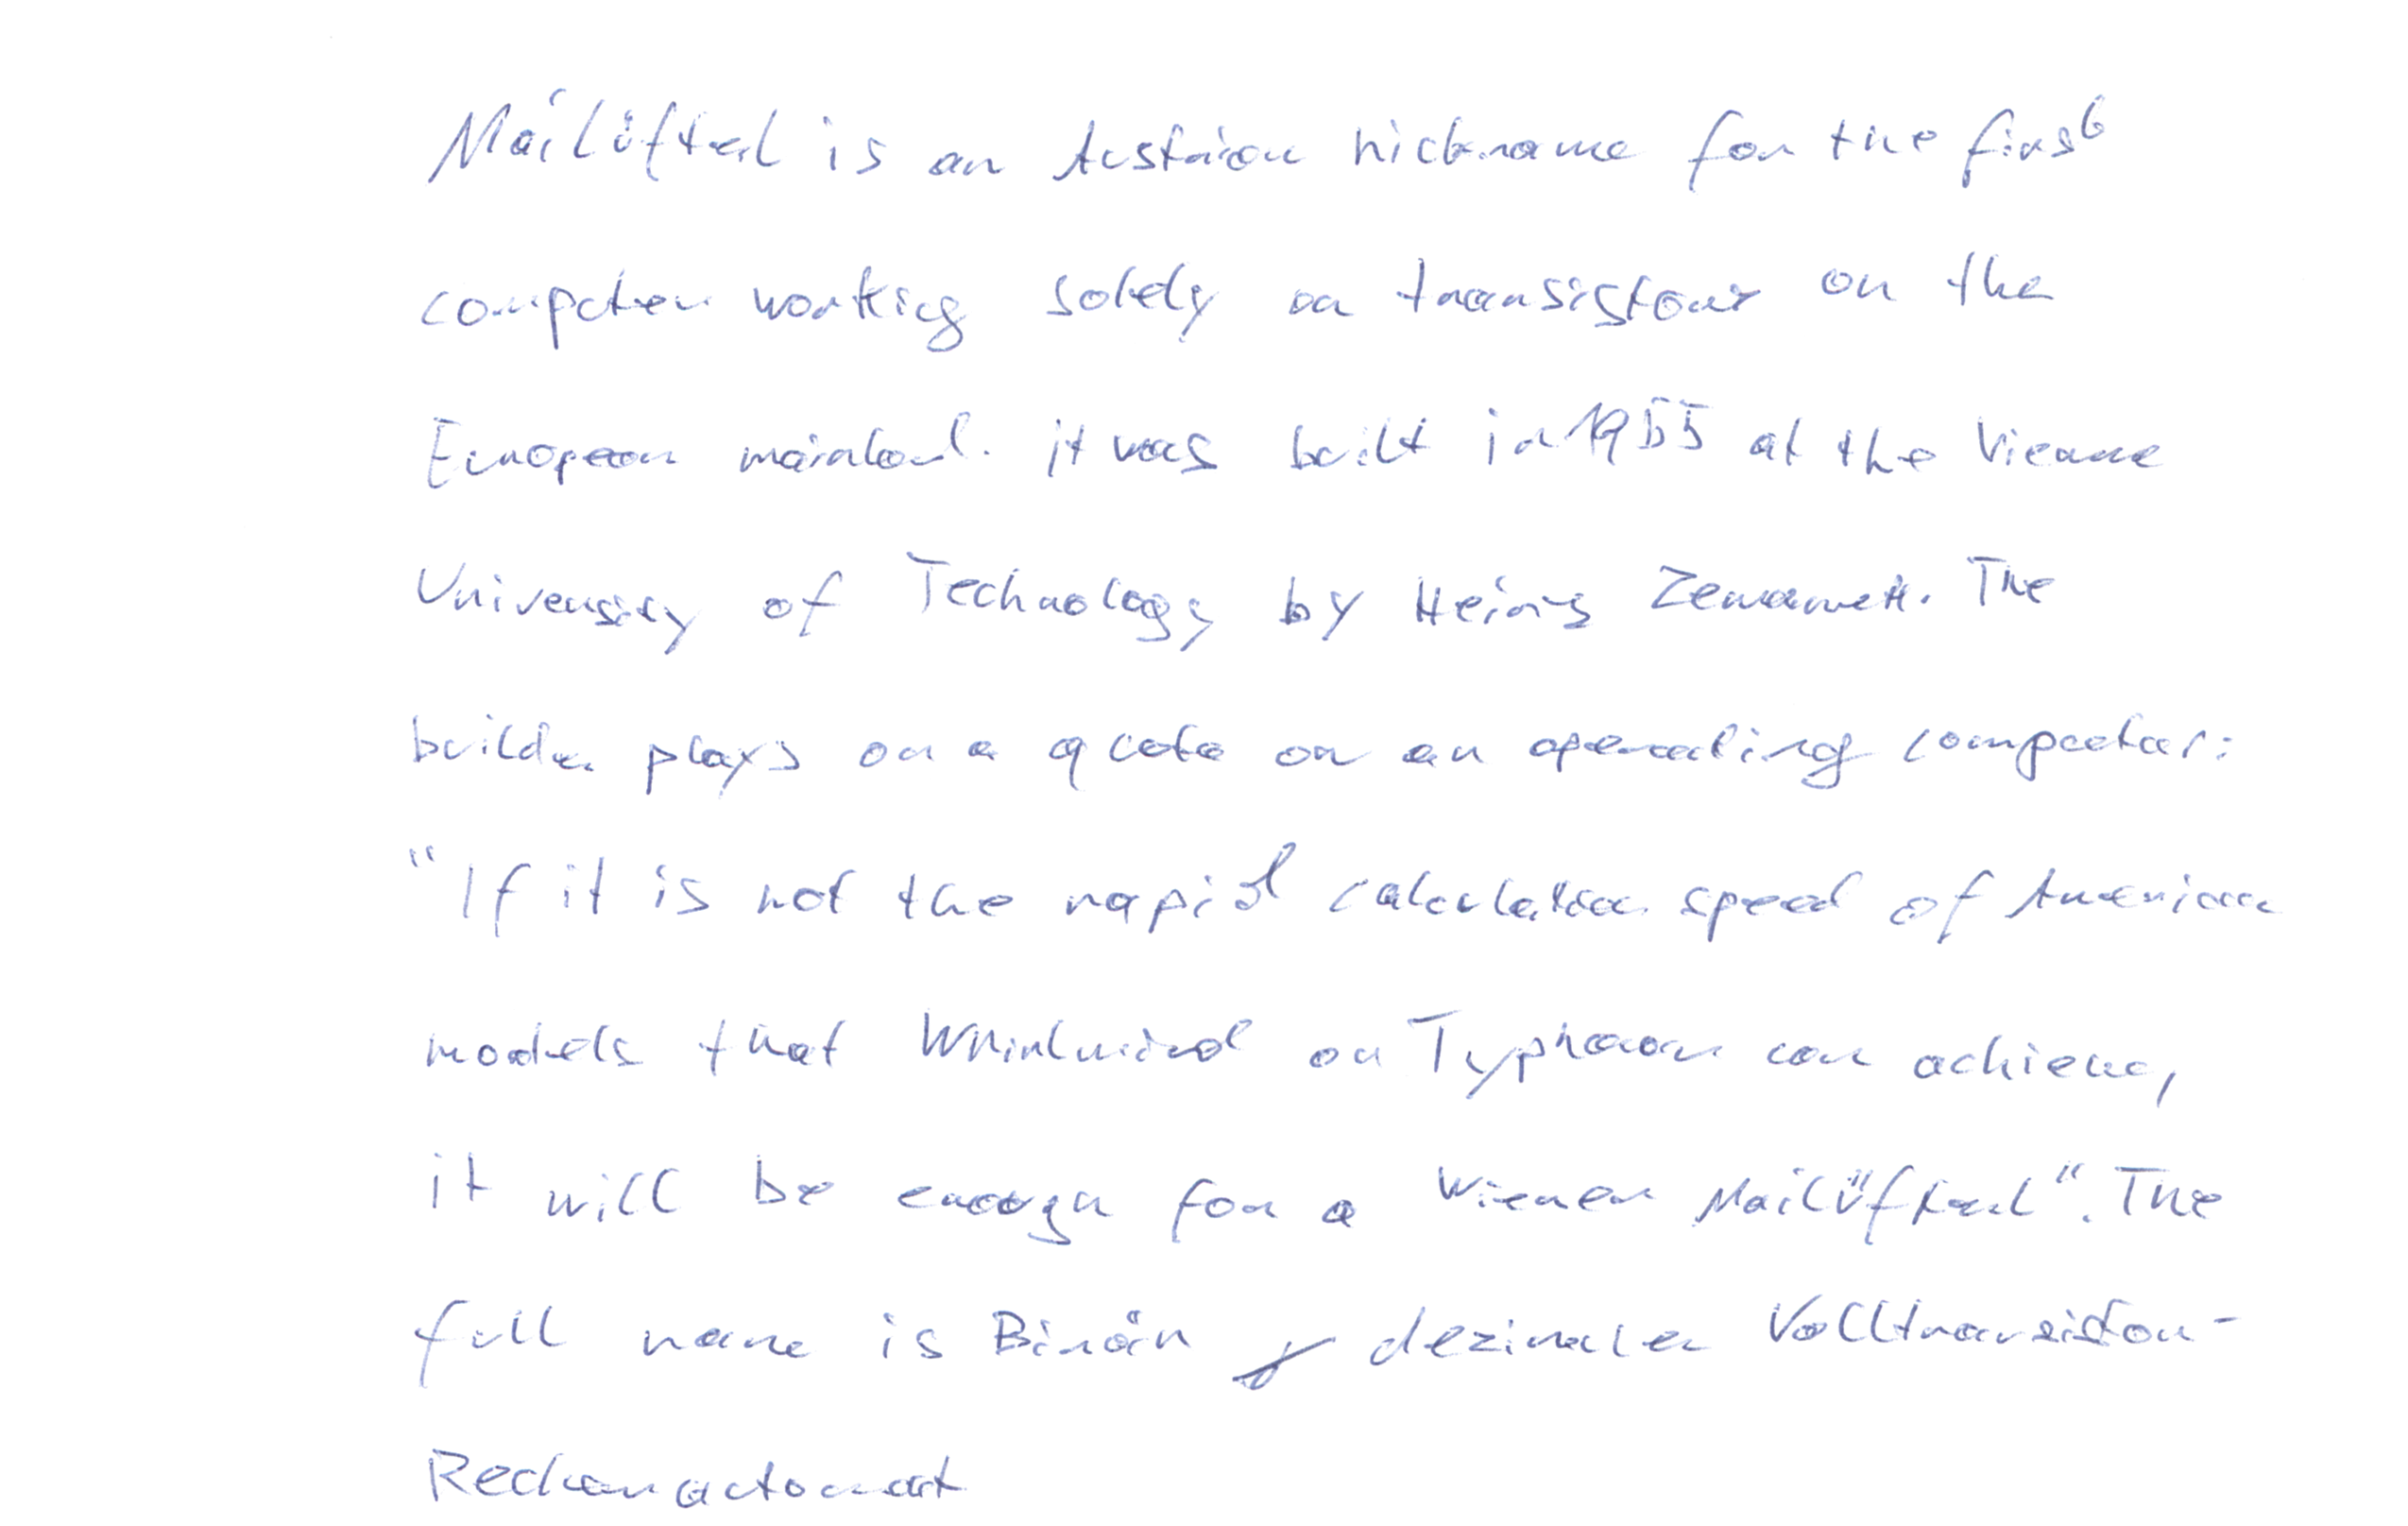 Mailüfterl is an Austrian nickname for the first
computer working solely on transistors on the
European mainland. it was built in 1955 at the Vienna
University of Technology by Heinz Zemanek. The
builder plays on a quote on an operating computer:
"If it is not the rapid calculation speed of American
models that Whirlwind or Typhoon can achieve,
it will be enough for a Wiener Mailüfterl". The
full name is Binär dezimaler Volltransistor-
Rechenautomat